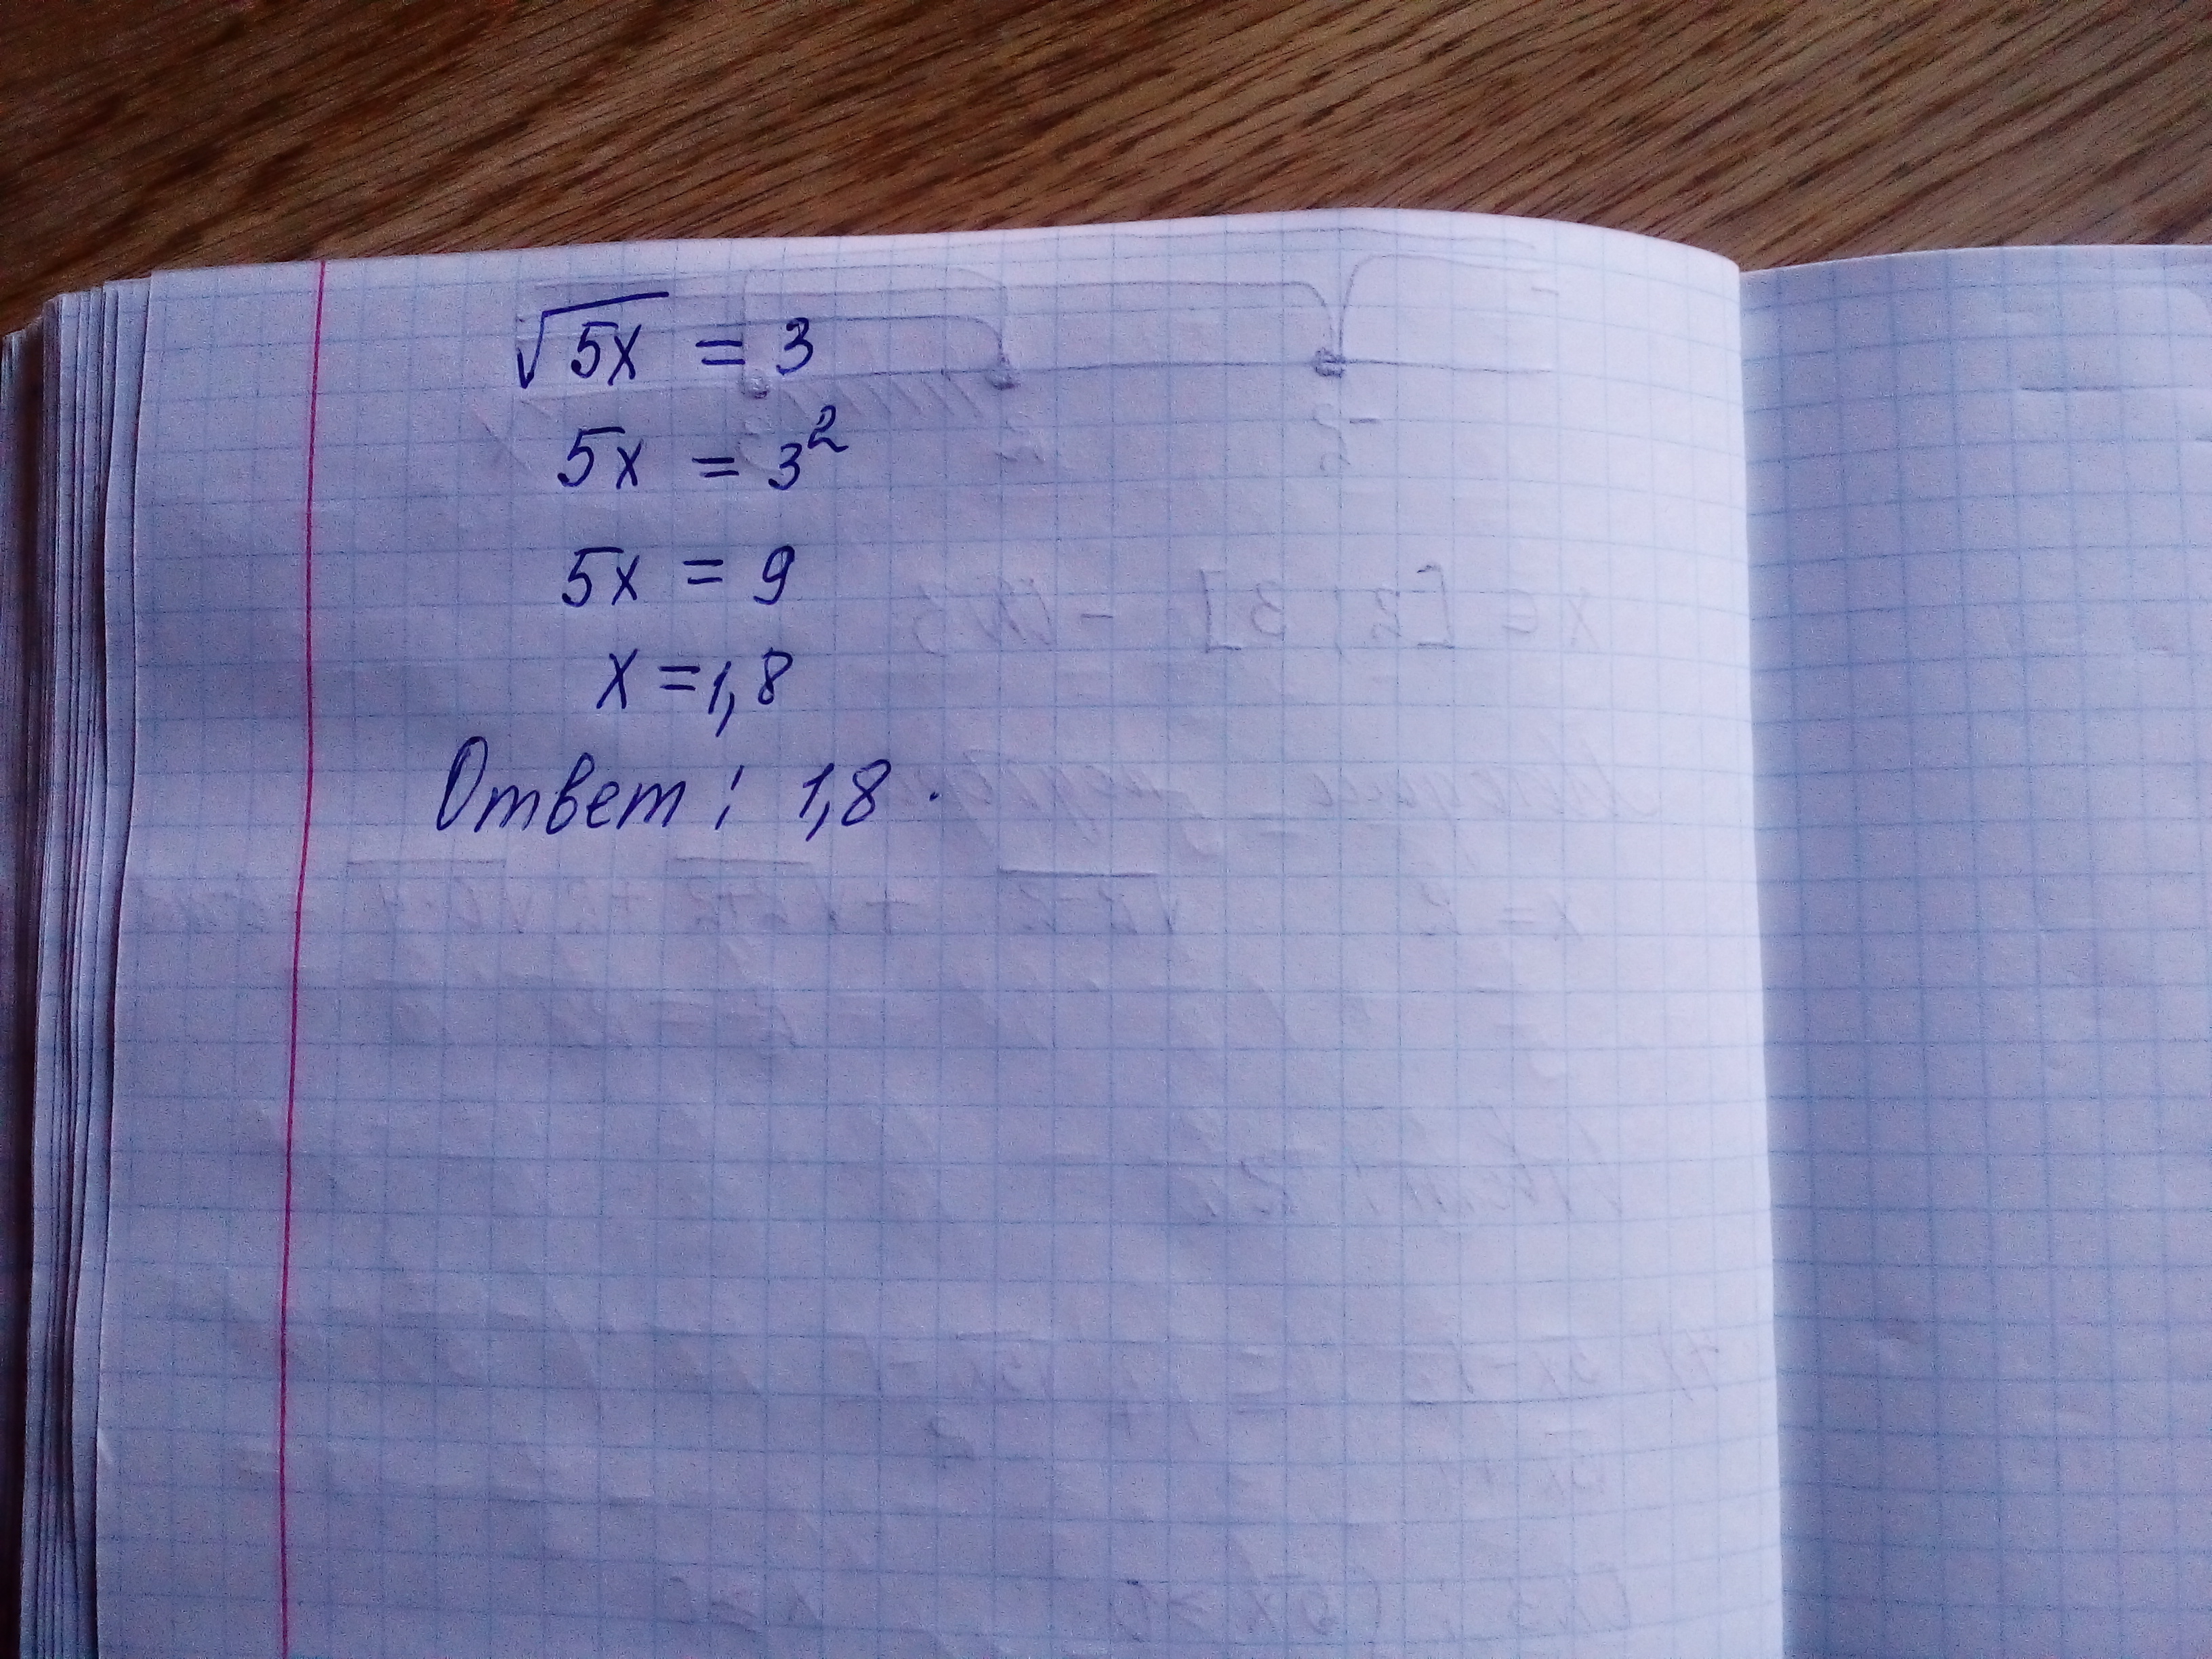 √5x = 3
5x = 3²
5x = 9
x = 1,8
Ответ: 1,8.